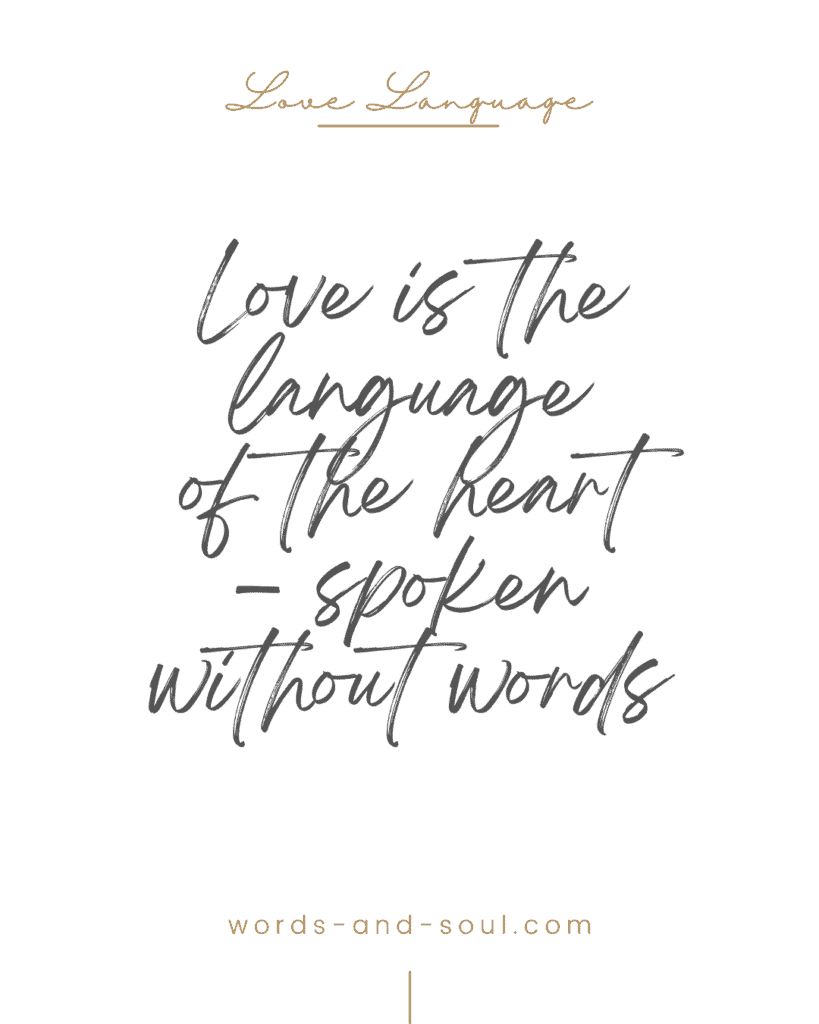 Love Language
Love is the
language
of the heart
– spoken
without words
words-and-soul.com